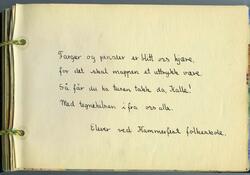 Farger og pensler er blitt oss kjære,
for det skal mappen et uttrykk være.
Så får du ha turen takk da, Kalle!
Med tegnehilsen i fra oss alle.
Elever ved Hammerfest folkeskole.